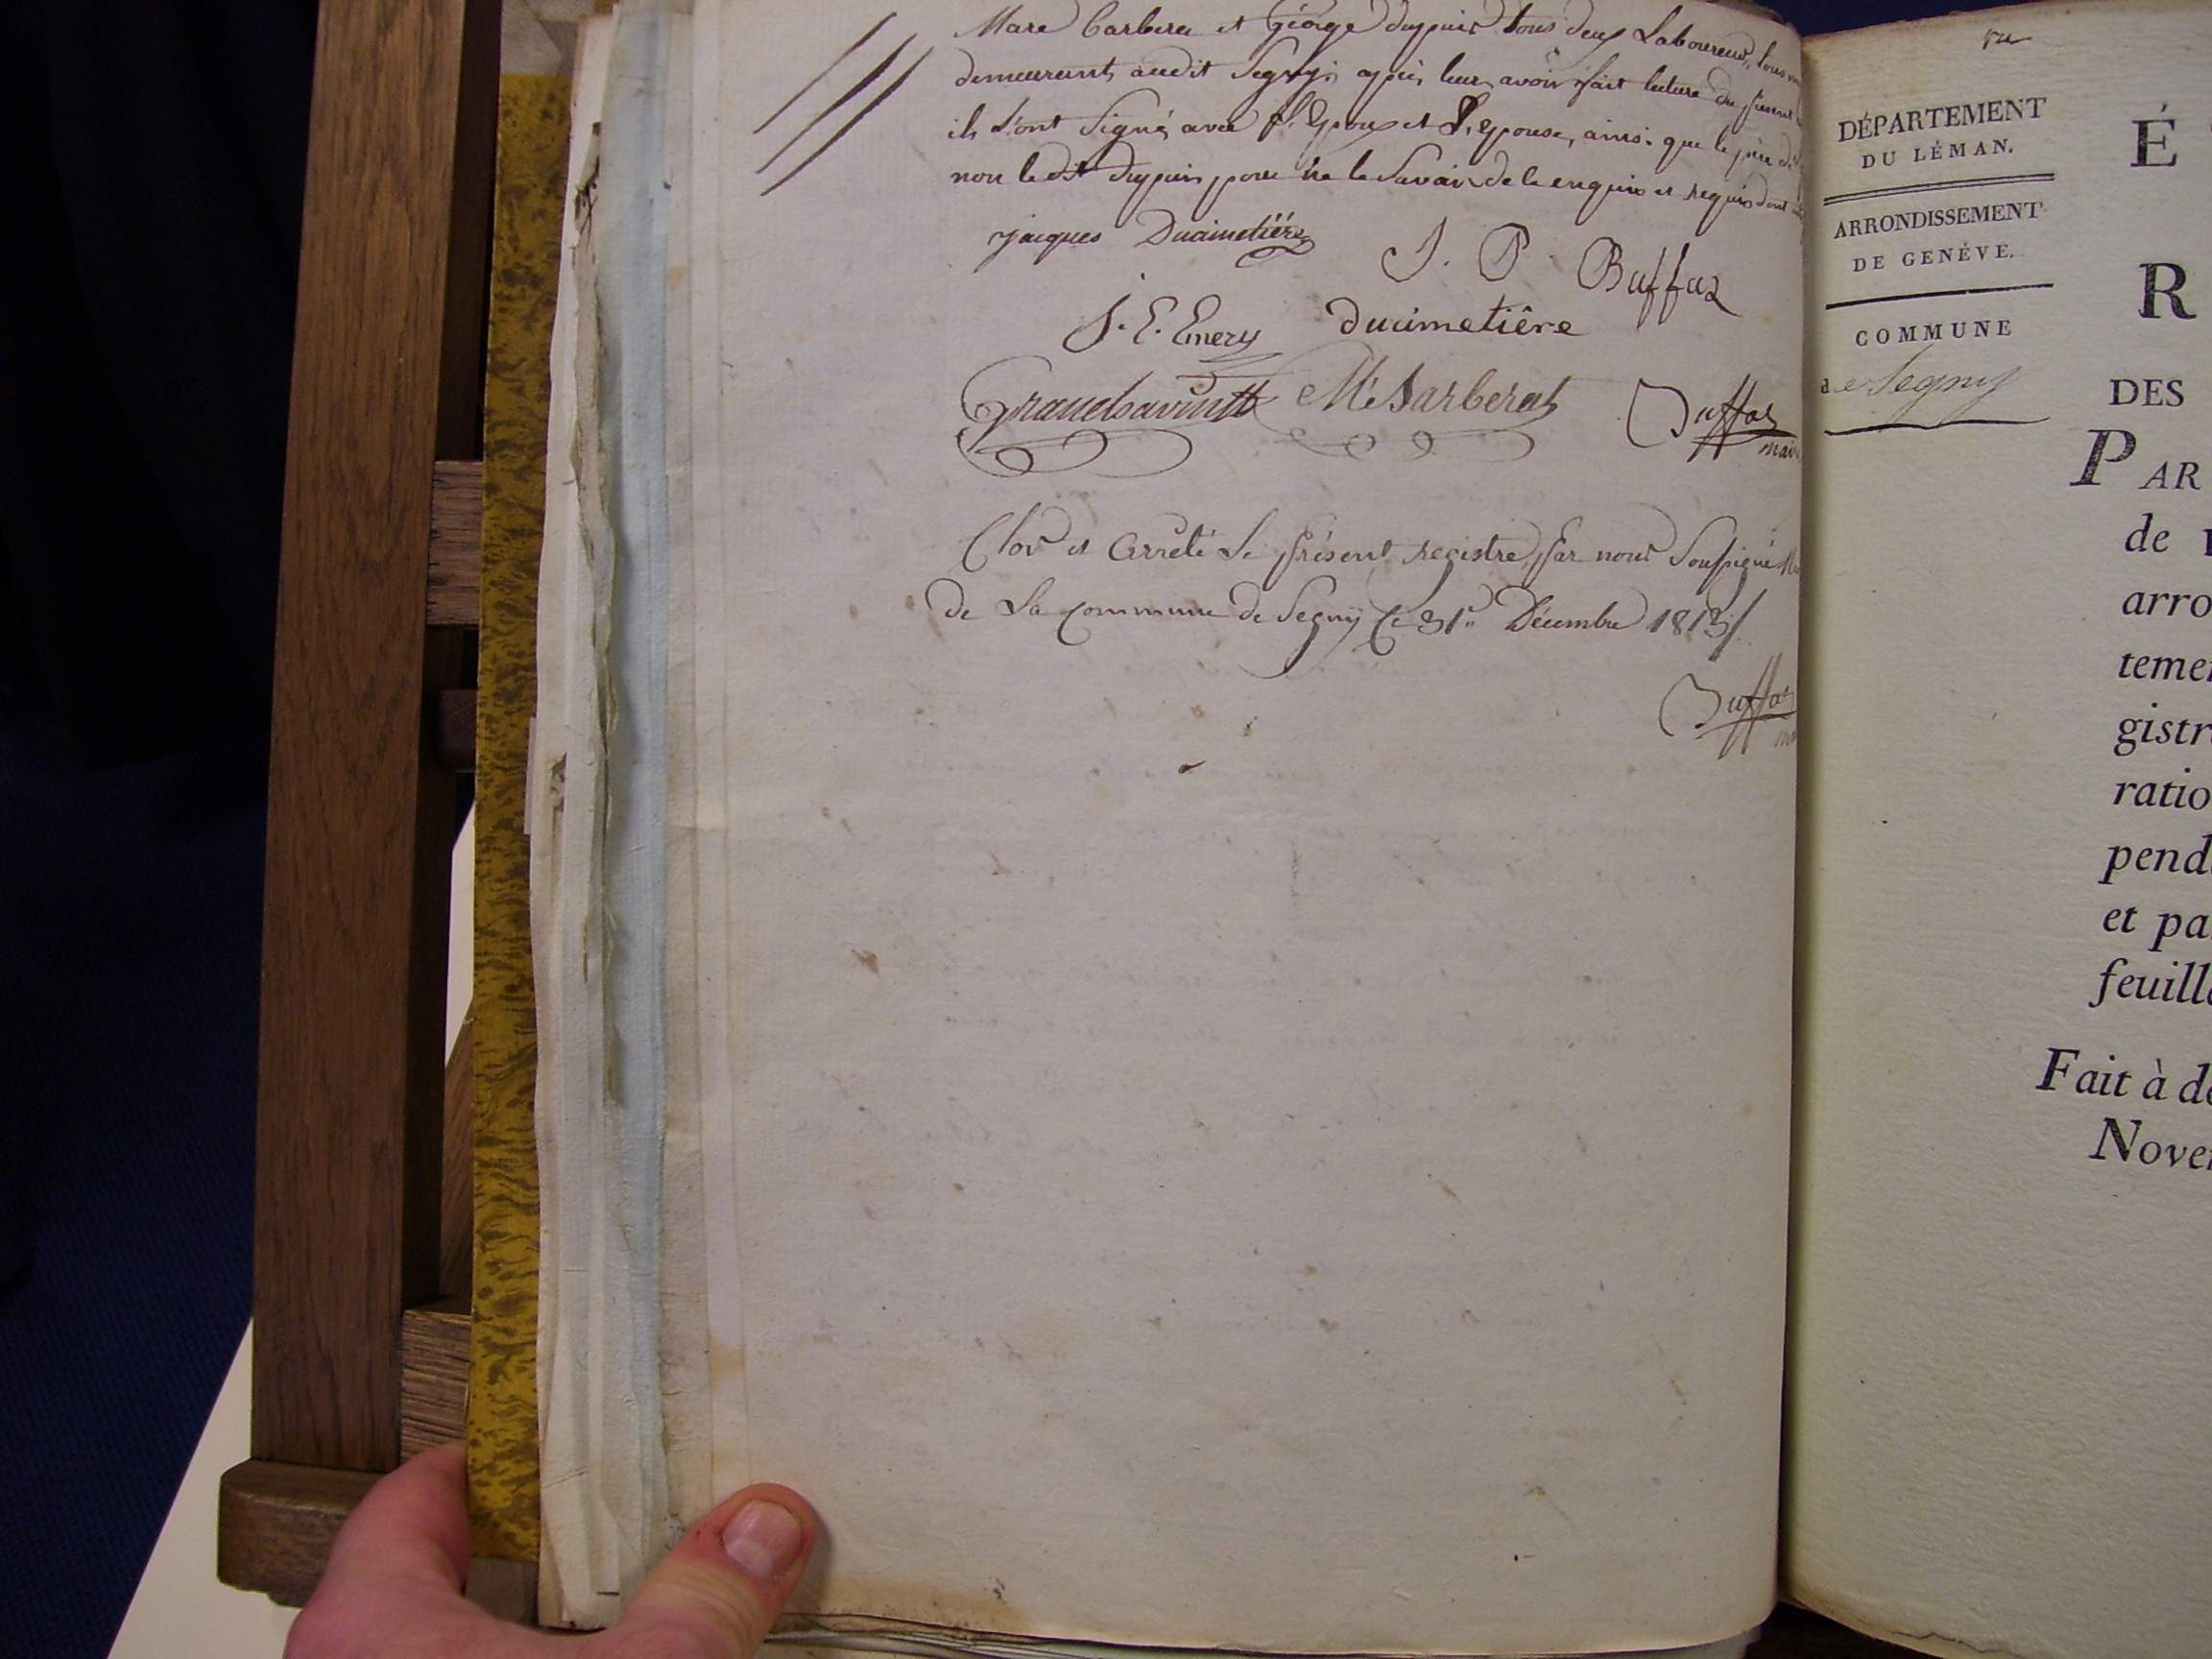 Marc barberat et George dupuis tous deux Laboureurs, tous
demeurants audit Segny; après leur avoir fait lecture du présent
ils L'ont Signé, avec L'Epoux et L'Epouse, ainsi que le père
non le dit dupuis pour ne le Savoir de le enquis et requis dont
jacques Ducimetière
J. P. Buffaz
J. E. Emery
ducimetiêre
Mc Barberat
Buffaz
Clos et Arrêté Le Présent registre, par nous Soussigné
de La Commune de Segny Ce 31e Décembre 1813
Buffaz
vu
DÉPARTEMENT
DU LÉMAN.
ARRONDISSEMENT
DE GENÈVE.
COMMUNE
de Segny
É
R
DES
PAR
de
arro
teme
gistr
ratio
pend
et pa
feuill
Fait à d
Nove